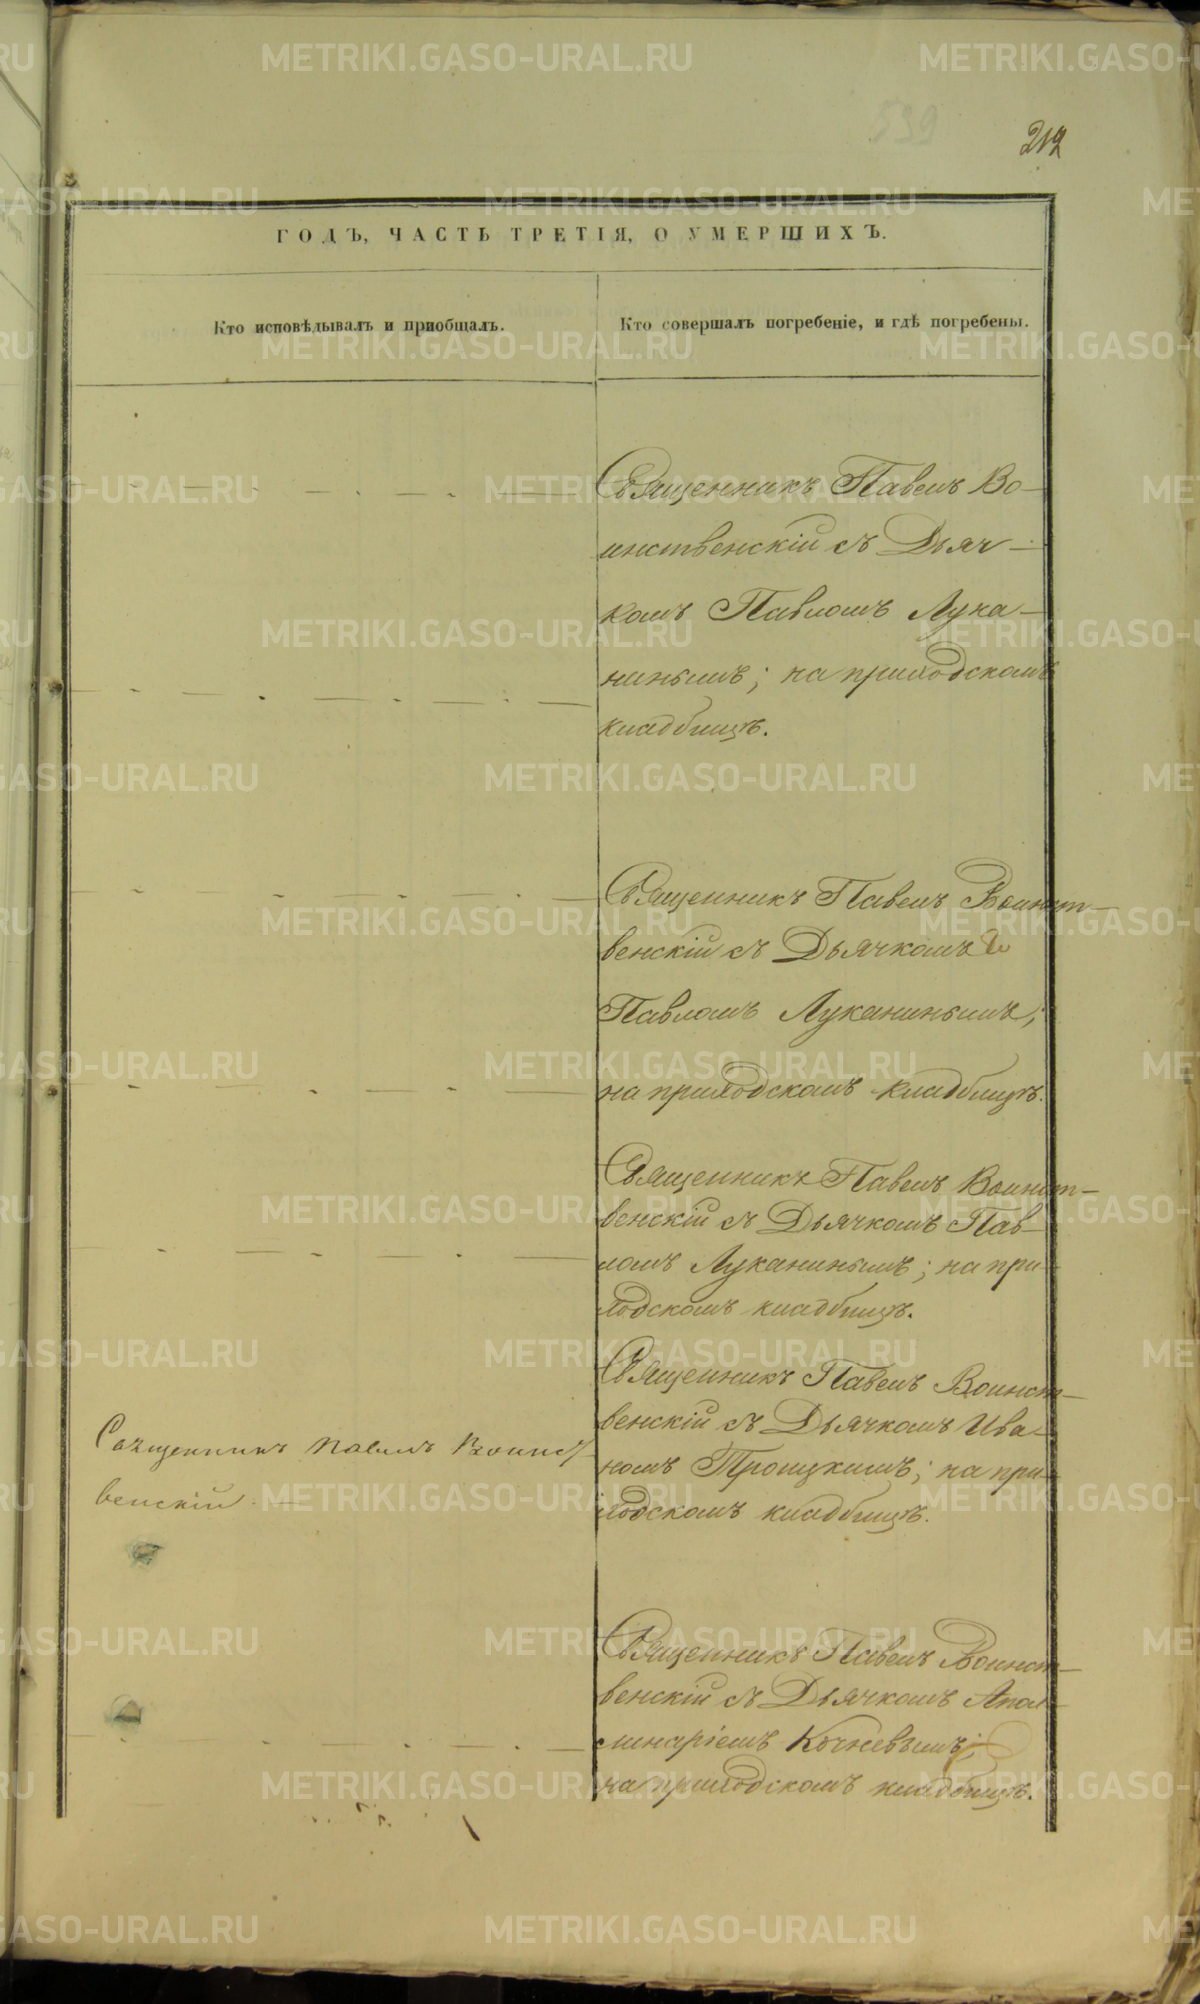 539
212
ГОДЪ, ЧАСТЬ ТРЕТІЯ, О УМЕРШИХЪ.
Кто исповѣдывалъ и приобщалъ.
Кто совершалъ погребеніе, и гдѣ погребены.
Священникъ Павелъ Во-
инственскій съ Дьяч-
комъ Павломъ Лука-
нинымъ; на приходскомъ
кладбищѣ.
Священникъ Павелъ Воинст-
венскій съ Дьячкомъ
Павломъ Луканинымъ;
на приходскомъ кладбищѣ.
Священникъ Павелъ Воинст-
венскій съ Дьячкомъ Пав-
ломъ Луканинымъ; на при-
ходскомъ кладбищѣ.
Священникъ Павелъ Воинст-
венскій съ Дьячкомъ Ива-
номъ Троицкимъ; на при-
ходскомъ кладбищѣ.
Священникъ Павелъ Воинст-
венскій. —
Священникъ Павелъ Воинст-
венскій съ Дьячкомъ Апол-
линаріемъ Кочневымъ;
на приходскомъ кладбищѣ.
METRIKI.GASO-URAL.RU